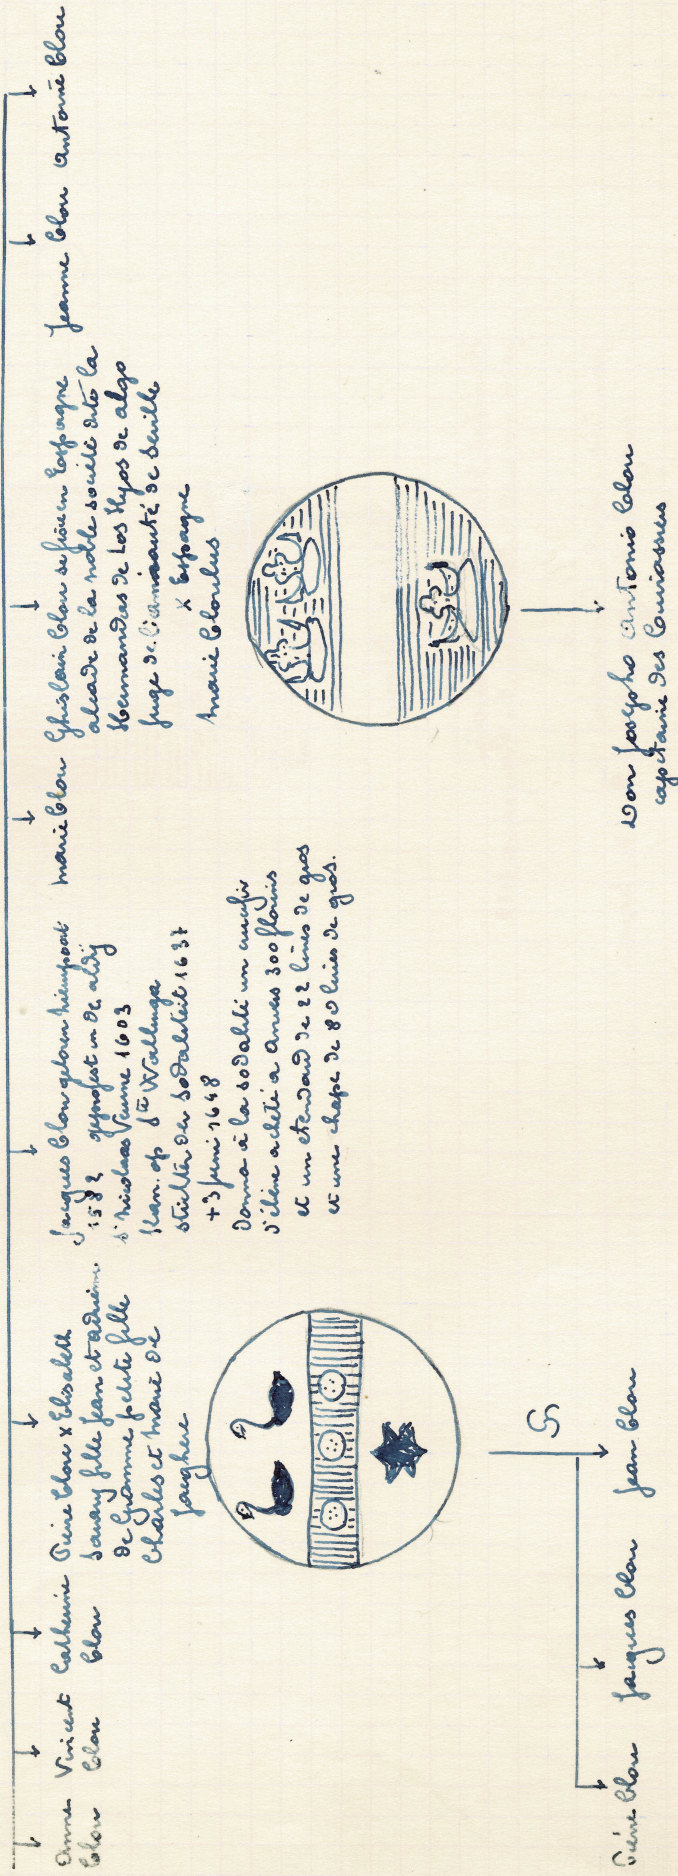 Anne
Clou
Vincent
Clou
Catherine
Clou
Pierre Clou x Elisabeth
fille Jean et Adrienne
de Gramme petite fille
Charles et Marie de
Jaeghere
Jacques Clou geboren
1582 geprofest in de abdij
St Nicolaas Veurne 1603
Kan. op Ste Walburga
stichter der Sodaliteit 1637
+ 3 juni 1648
Donna à la sodalité un crucifix
d'ébène acheté à Anvers 300 florins
et un étendard de 22 livres de gros
et une chape de 80 livres de gros.
Marie Clou
Ghislain Clou se fixe en Espagne
alcade de la noble société dite la
Hermandas de Los Hyos de algo
juge de l'amirauté de Seville
x Espagne
Marie
Jeanne Clou
Antoine Clou
Don Josepho Antonio Clou
capitaine des Cuirassiers
Pierre Clou
Jacques Clou
Jean Clou